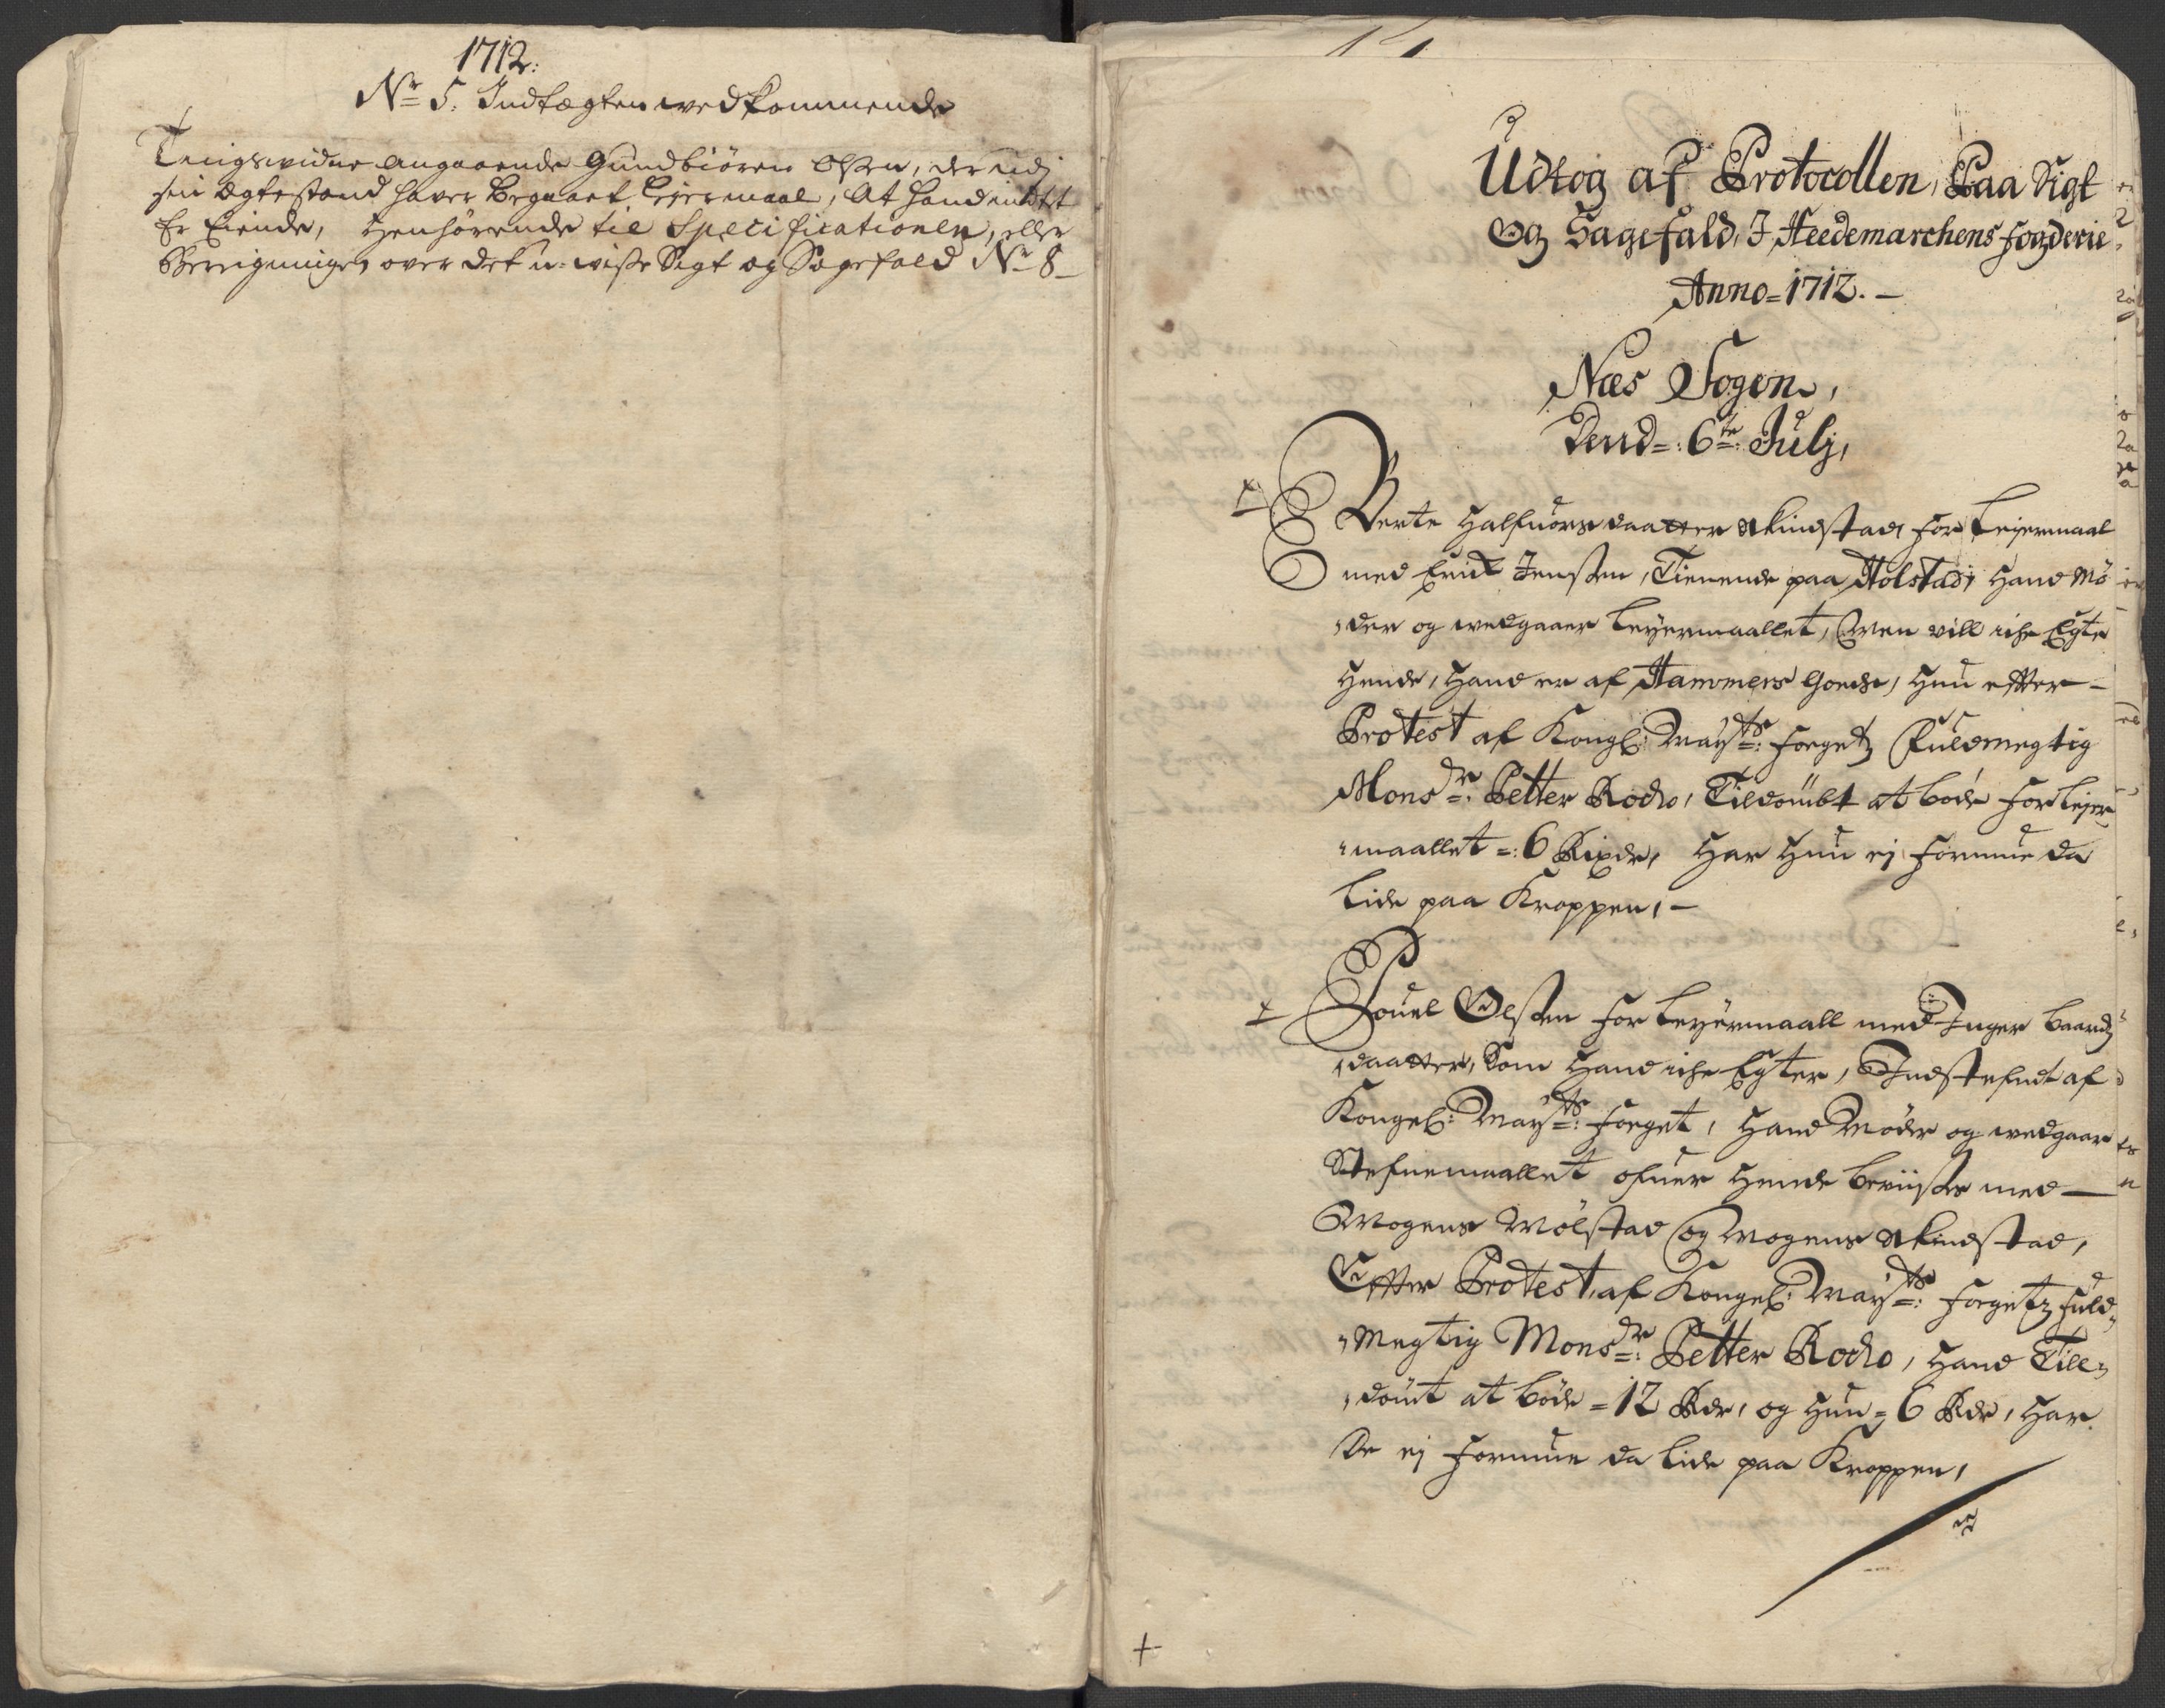 1712:
No 5. Indtægten vedkommende
Tingsvidne angaaende Gundbiören Olsen, der udj
sin ægtestand haver begaaet Leiermaal, At hand intet
Er Eiende, henhörende til Specificationen, eller
Beregningen over det u-visse Sigt og Sagefald No 8
Udtog af Protocollen, Paa Sigt
Og Sagefald, I Heedemarchens fogderie
Anno = 1712. –
Næs Sogen,
Dend =: 6te: Julj,
Berte Halfuorsdaatter Skindstad, for Leyermaal
med Erich Jenssen, Tienende paa Holstad, Hand Mö
,der og vedgaaer Leyermaallet, Men vill iche Egte
Hende, Hand er af Hammers Gods, Hun effter –
Protest af Kongl: Mayts: Fogetz Fuldmegtig
Monsr: Petter Rodio, Tildömbt at böde for Leyer
,maallet =: 6 Rixdr, Har Hun ej Formue da
Lide paa Kroppen, –
Pouel Olssen for Leyermaall med Inger Baardz
,daatter, Som Hand iche Egter, Indstefnet af
Kongel: Mayts: Foget, Hand Möder og vedgaar
Stefnemaallet ofuer Hende beviisses med –
Mogens Mölstad og Mogens Skindstad,
Effter Protest, af Kongel: Mayts: Fogetz Fuld,,
,Megtig Monsr: Petter Rodio, Hand Till,,
,dömt at böde = 12 Rdr, og Hun = 6 Rdr, Har
De ej Formue da Lide paa Kroppen,